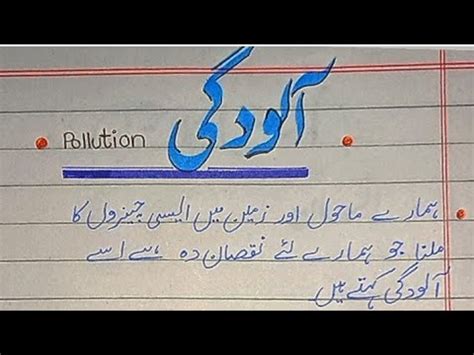 Pollution آلودگی
ہمارے ماحول اور زمین میں ایسی چیزوں کا
ملنا جو ہمارے لئے نقصان دہ ہے اسے
آلودگی کہتے ہیں